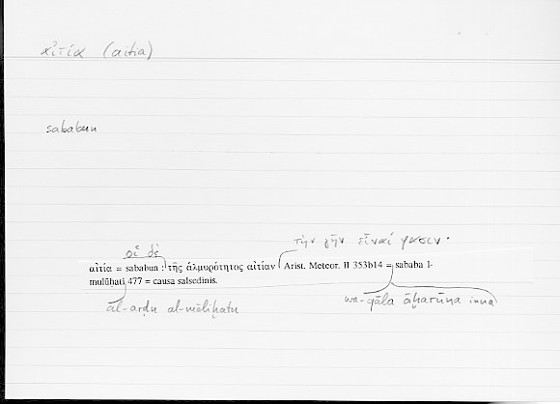 αἰτία (aitia)
sababun
οἱ δὲ
τὴν γῆν εἶναί φασιν·
αἰτία = sababun : τῆς ἁλμυρότητος αἰτίαν Arist. Meteor. II 353b14 = sababa l-
mulūḥati 477 = causa salsedinis.
al-arḍu al-māliḥatu
wa-qāla āḫarūna inna